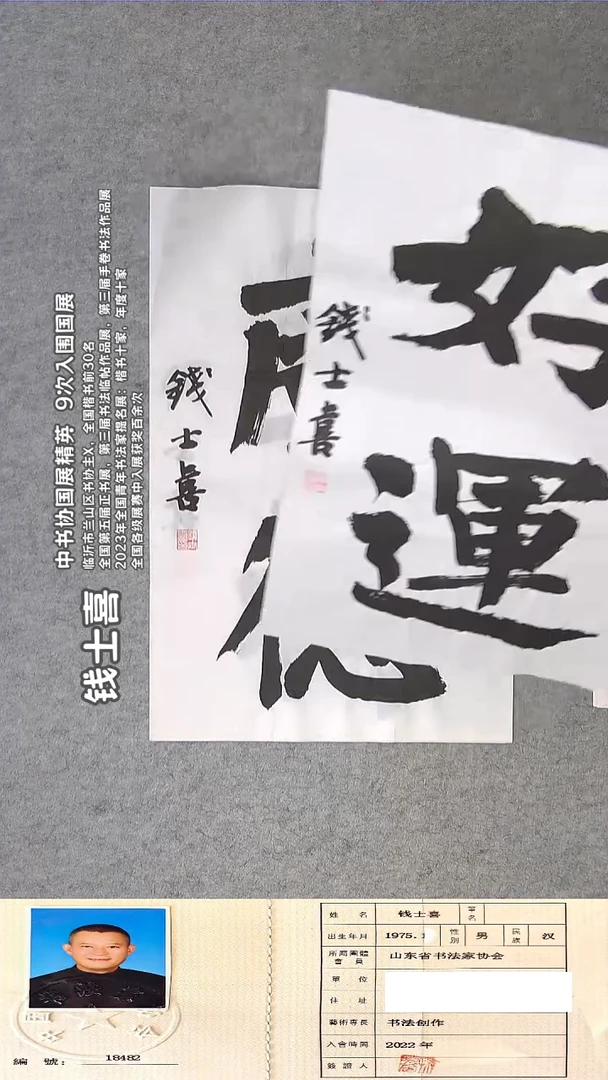 中书协国展精英 9次入围国展
临沂市兰山区书协主X、全国楷书前30名
全国第五届正书展，第三届书法临帖作品展，第三届手卷书法作品展
2023年全国青年书法家提名展：楷书十家，年度十家
全国各级展赛中入展获奖百余次
钱士喜
好
運
錢士喜
錢士喜
德
姓 名 钱士喜 署名
出生年月 1975. 性别 男 民族 汉
所属團體會員 山东省书法家协会
單 位
住 址
藝術專長 书法创作
入会時間 2022 年
簽證人
編 號： 18482